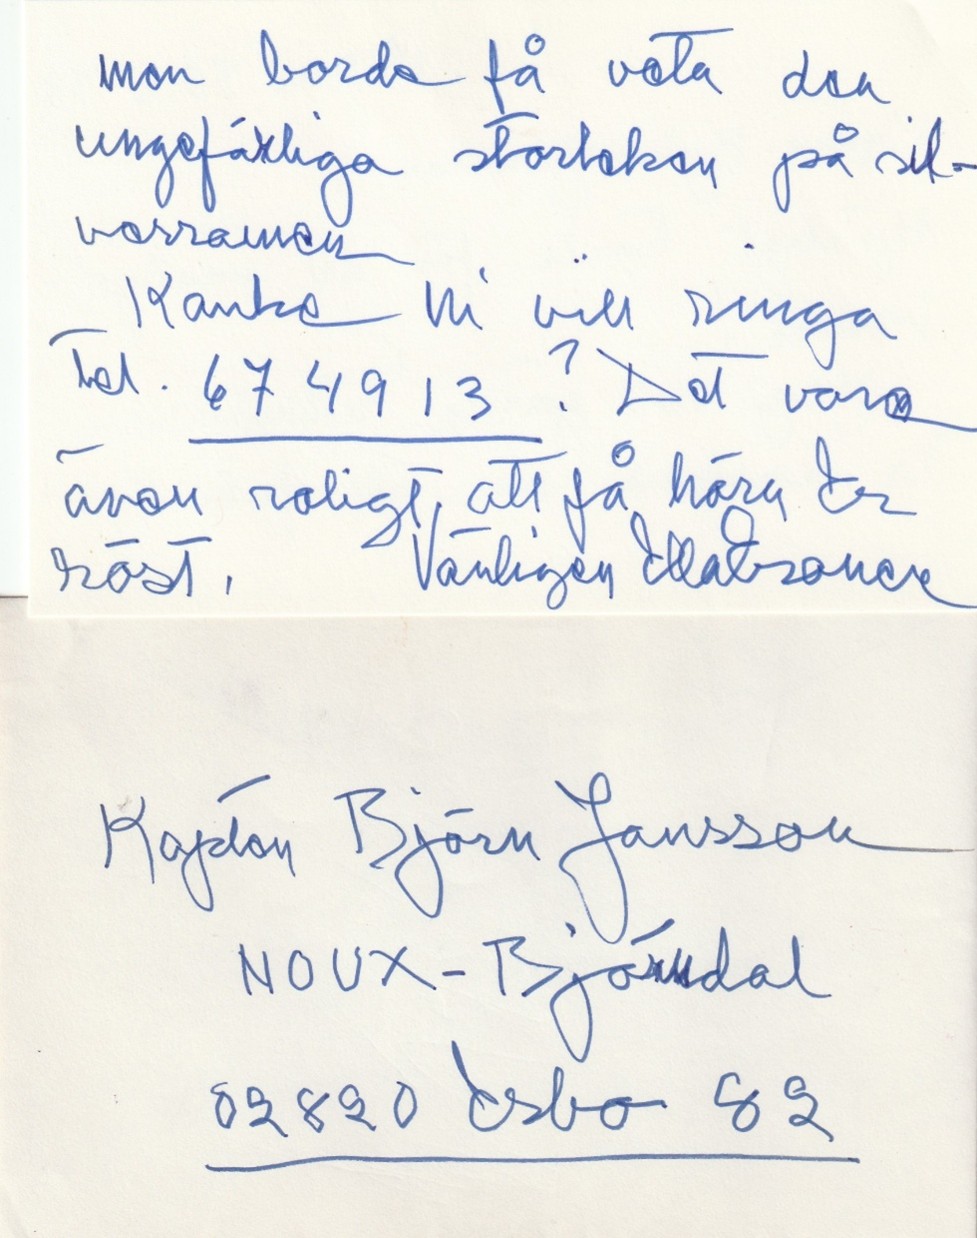 man borde få veta den
ungefärliga storleken på sil-
verramen
Kanke Ni vill ringa
Tel. 674913? Det vore
även roligt att få höra Er
röst. Vänligen
Kapten Björn Jansson
NOUX-Björndal
02820 Esbo 82